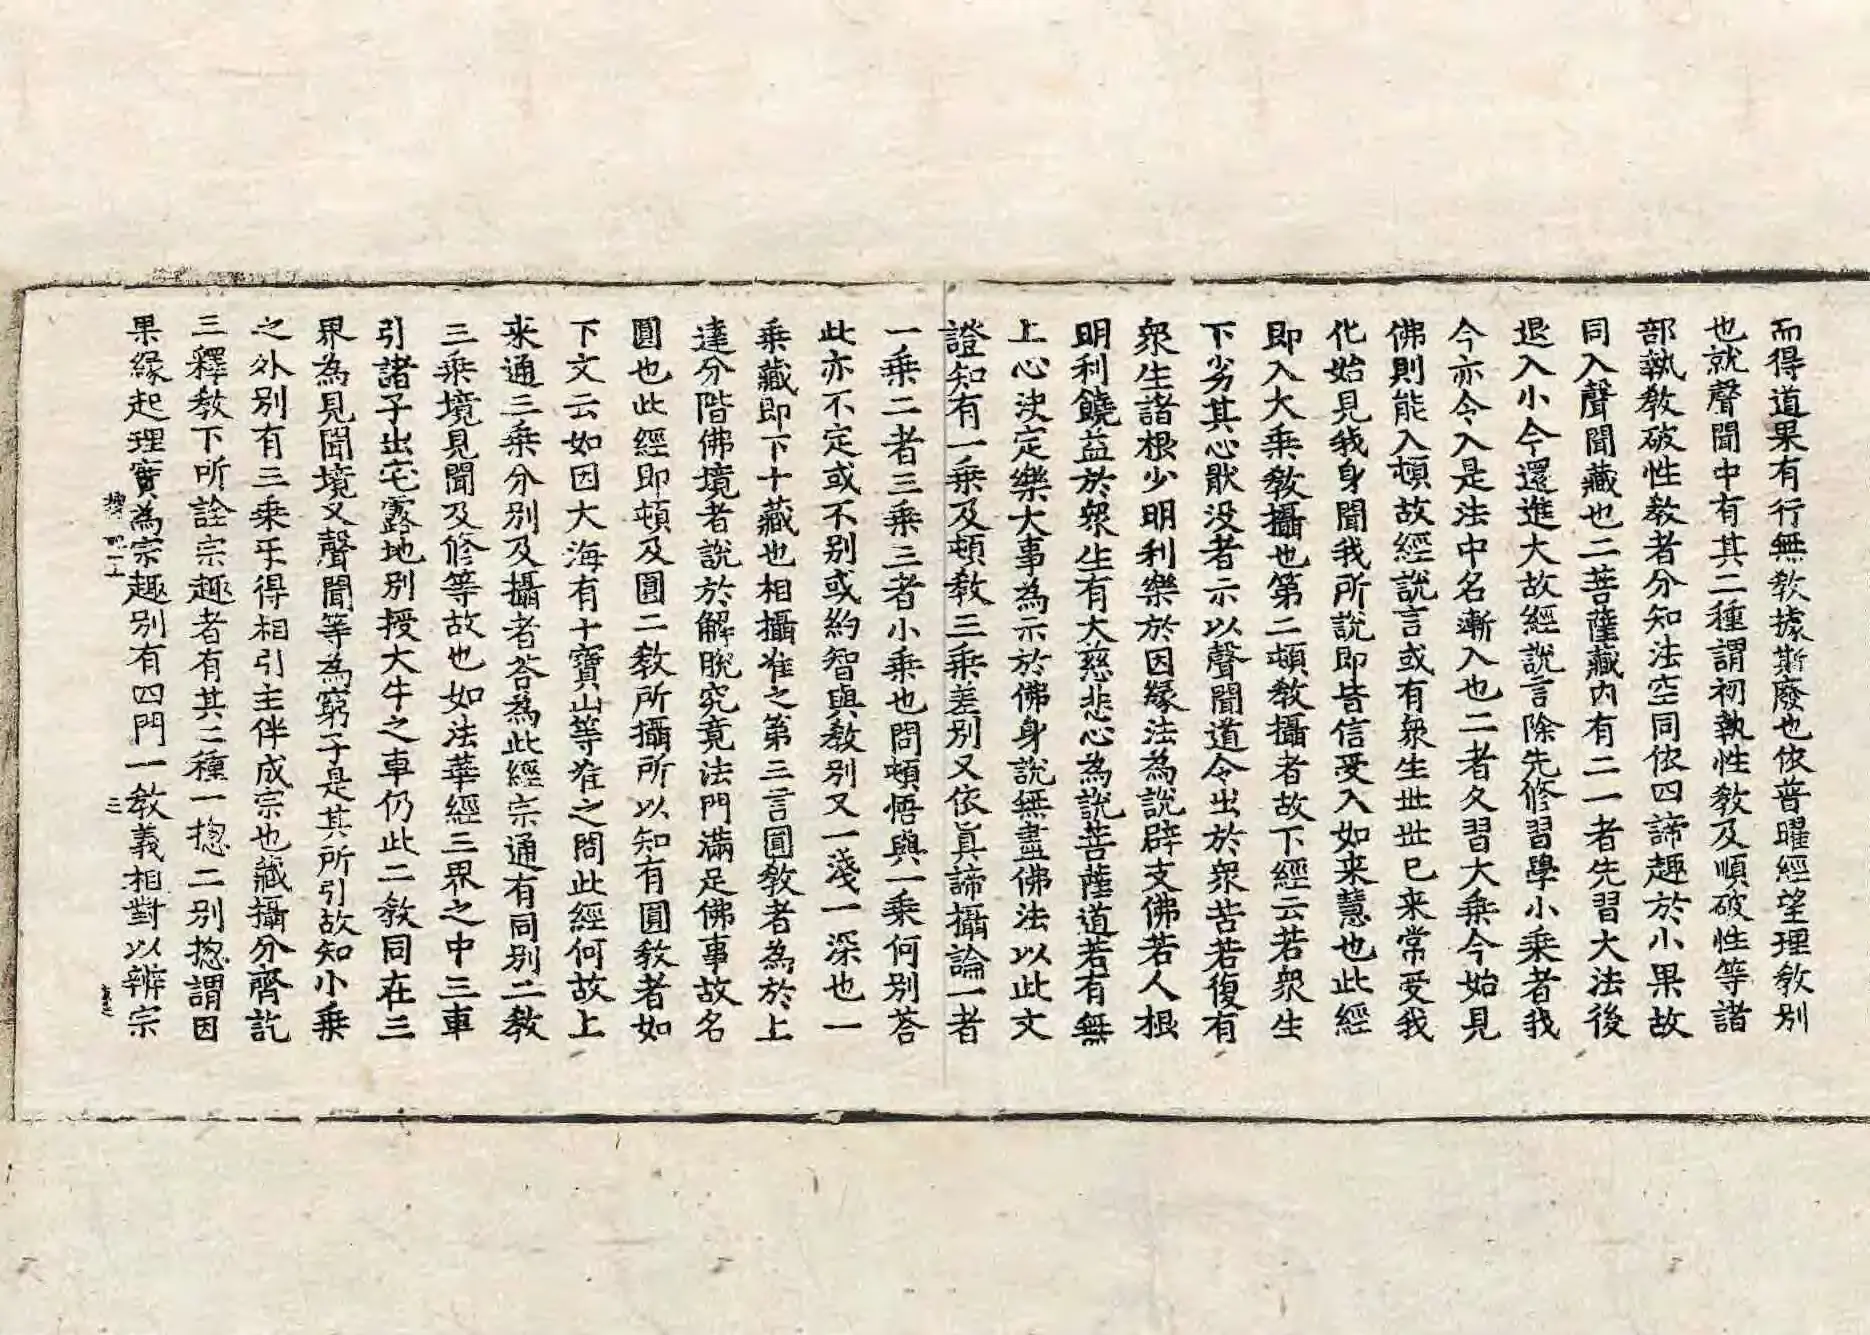 而得道果有行無教據斯廢也依普曜經望理教別
也就聲聞中有其二種謂初執性教及順破性等諸
部執教破性教者分知法空同依四諦趣於小果故
同入聲聞藏也二菩薩藏內有二一者先習大法後
退入小今還進大故經說言除先修習學小乘者我
今亦令入是法中名漸入也二者久習大乘今始見
佛則能入頓故經說言或有衆生世世已来常受我
化始見我身聞我所說即皆信受入如来慧也此經
即入大乘教攝也第二頓教攝者故下經云若衆生
下劣其心猒没者示以聲聞道令出於衆苦若復有
衆生諸根少明利樂於因緣法為說辟支佛若人根
明利饒益於衆生有大慈悲心為說菩薩道若有無
上心決定樂大事為示於佛身說無盡佛法以此文
證知有一乘及頓教三乘差別又依真諦攝論一者
一乘二者三乘三者小乘也問頓悟與一乘何別荅
此亦不定或不別或約智與教別又一淺一深也一
乘藏即下十藏也相攝准之第三言圓教者為於上
達分階佛境者說於解脫究竟法門滿足佛事故名
圓也此經即頓及圓二教所攝所以知有圓教者如
下文云如因大海有十寶山等准之問此經何故上
来通三乘分別及攝者荅為此經宗通有同別二教
三乘境見聞及修等故也如法華經三界之中三車
引諸子出宅露地別授大牛之車仍此二教同在三
界為見聞境又聲聞等為窮子是其所引故知小乘
之外別有三乘㸦得相引主伴成宗也藏攝分齊訖
三釋教下所詮宗趣者有其二種一揔二別揔謂因
果緣起理實為宗趣別有四門一教義相對以辨宗